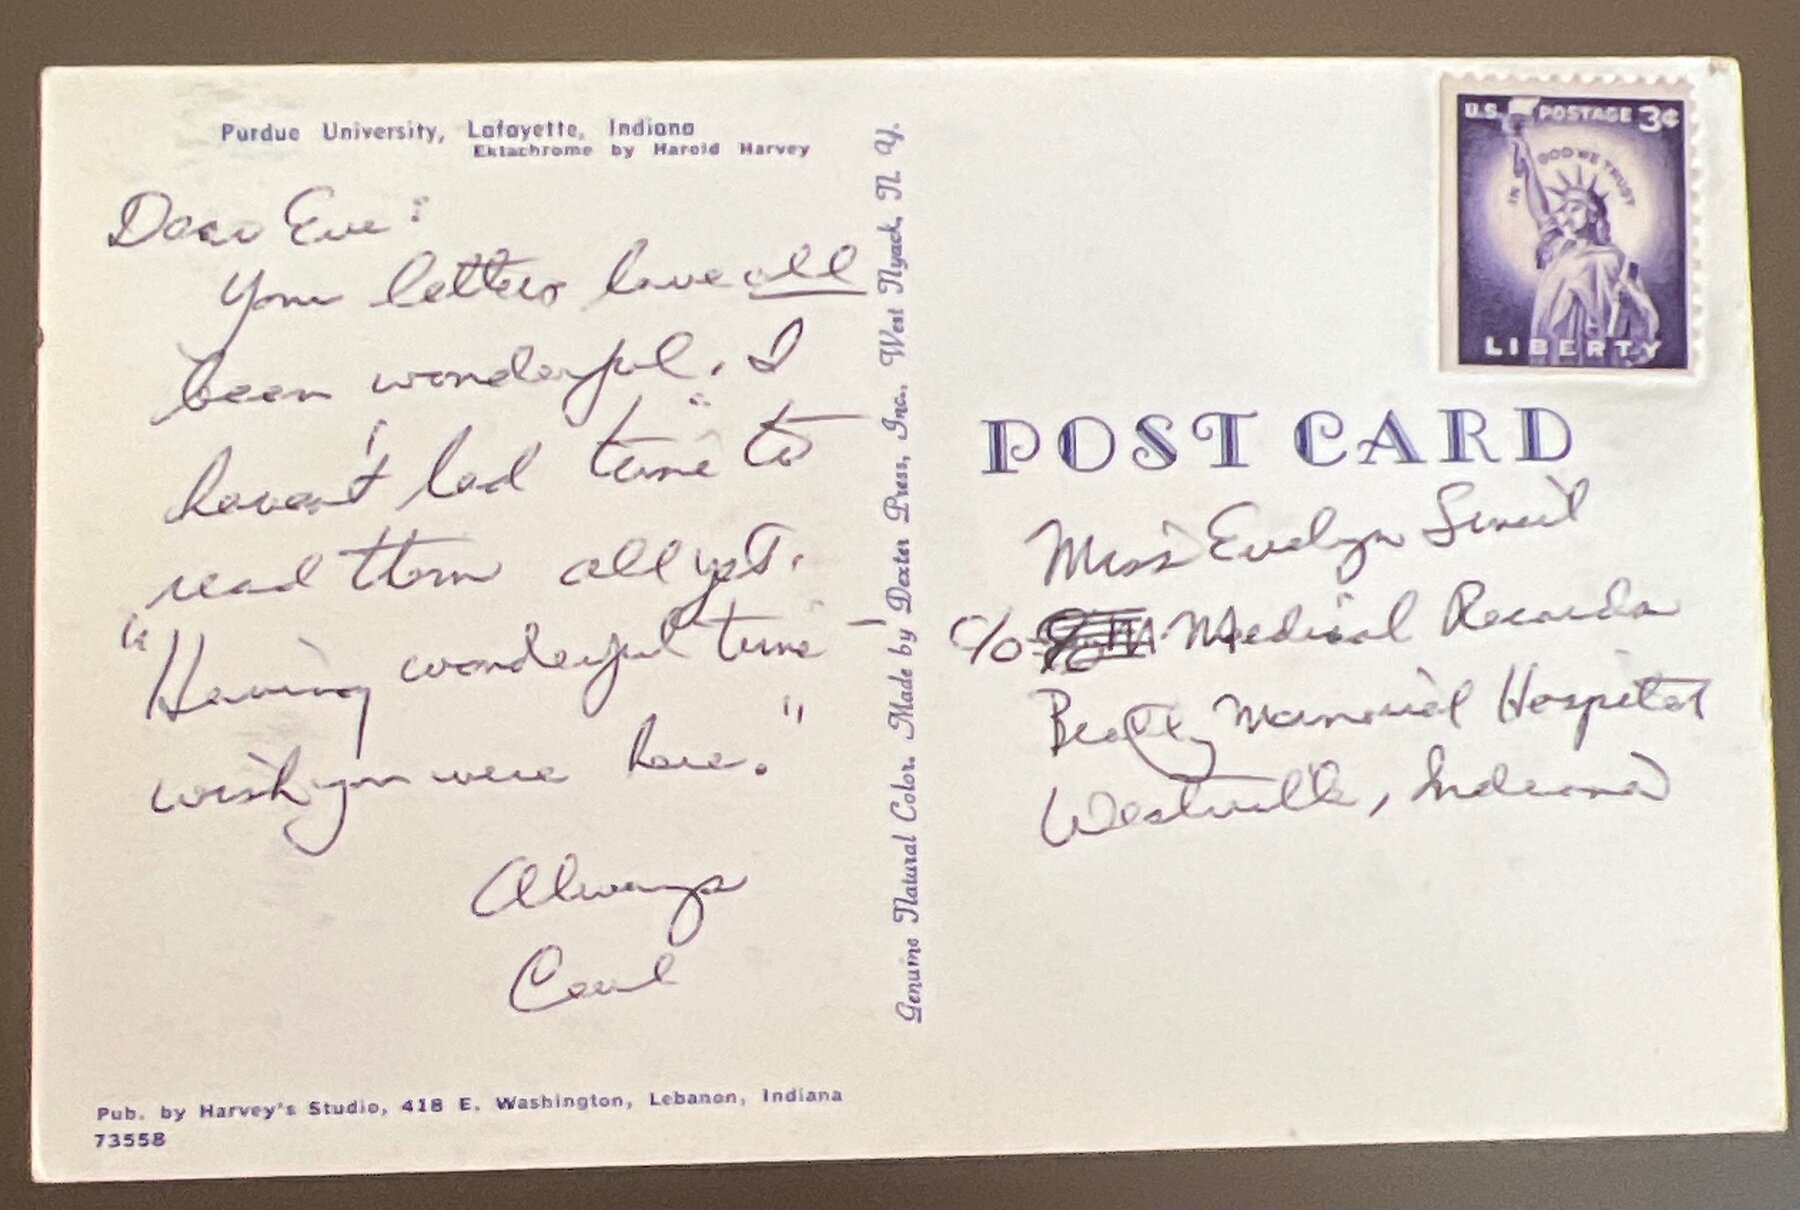 Purdue University, Lafayette, Indiana
Ektachrome by Harold Harvey
Dear Eve:
Your letters have all
been wonderful. I
haven't had time to
read them all yet.
"Having wonderful time —
wish you were here."
Always
Carl
Pub. by Harvey's Studio, 418 E. Washington, Lebanon, Indiana
73558
Genuine Natural Color. Made by Dexter Press, Inc. West Nyack, N. Y.
U.S. POSTAGE 3¢
IN GOD WE TRUST
LIBERTY
POST CARD
Miss Evelyn
c/o Medical Records
Beatty Memorial Hospital
Westville, Indiana